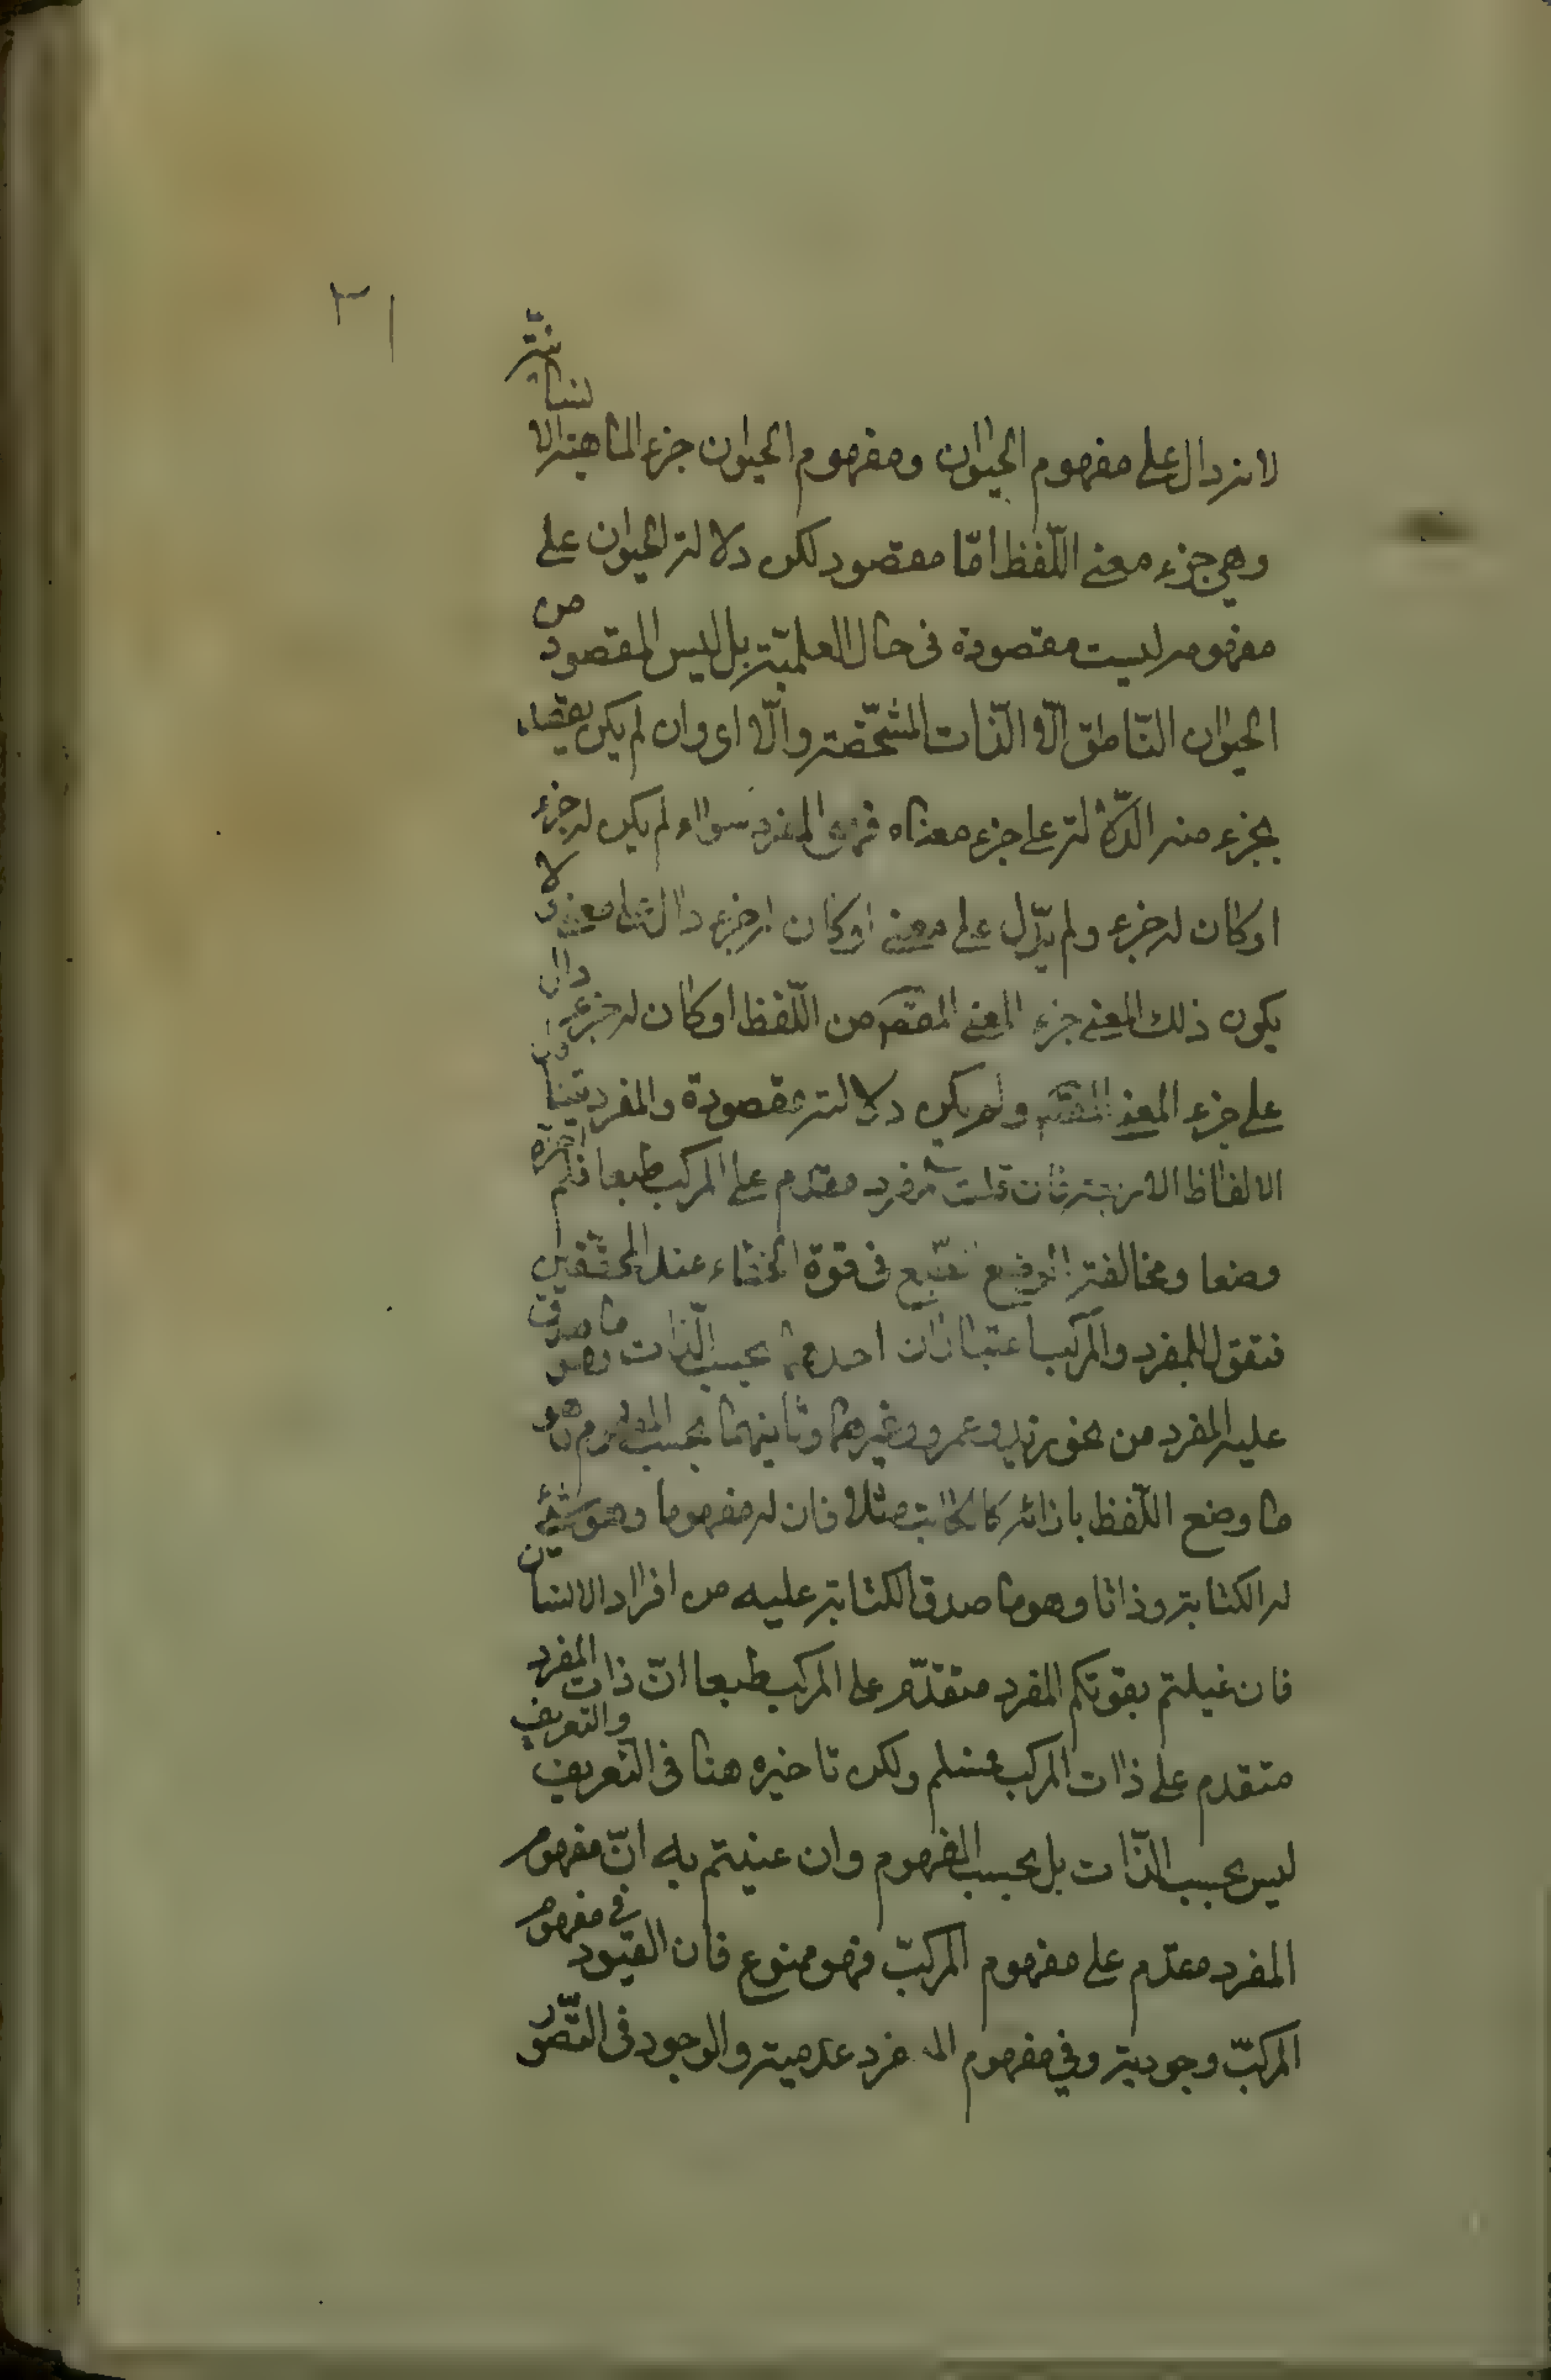 ٣١
لانه دال على مفهوم الحيوان ومفهوم الحيوان جزء الماهية الانسانية
وهي جزء معنى اللّفظ امّا مقصود لكن دلالته الحيوان على
مفهومه ليست مقصودة فى حال العلميّة بل ليس المقصود من
الحيوان النّاطق الّا الذّات المشخّصة والّا اى وان لم يكن يقصد
بجزء منه الدّلالة على جزء معناه فهو المفرد سواء لم يكن له جزء
او كان له جزء ولم يدّل على معنى او كان له جزء دال على معنى لا
يكون ذلك المعنى جزء المعنى المقصود من اللّفظ او كان له جزء دال
على جزء المعنى ولم يكن دلالته مقصودة والمفرد
الالفاظ فان قلت المفرد مقدم على المركب طبعا فلم اخره
وضعا ومخالفة الوضع الطّبع فى قوة الخطاء عند المحققين
فنقول للمفرد والمركب اعتباران احدهما بحسب الذّات وهو ما صدق
عليه المفرد من نحو زيد وعمرو وغيرهما وثانيهما بحسب المفهوم وهو
ما وضع اللّفظ بازائه كالكاتب مثلا فان له مفهوما وهو شئ
له الكتابة وذاتا وهو ما صدق الكتابة عليه من افراد الانسان
فان عنيتم بقولكم المفرد متقدّم على المركب طبعا انّ ذات المفرد
متقدم على ذات المركب فمسلم ولكن تاخيره هنا فى التعريف والتعريف
ليس بحسب الذّات بل بحسب المفهوم وان عنيتم به انّ مفهوم
المفرد مقدّم على مفهوم المركبّ فهو ممنوع فان القيود فى مفهوم
المركبّ وجودية وفي مفهوم المفرد عدمية والوجود فى التّصّور